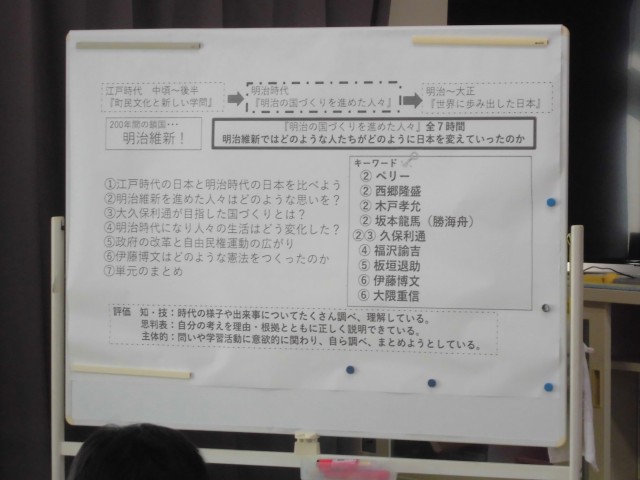 江戸時代 中頃~後半
『町民文化と新しい学問』
明治時代
『明治の国づくりを進めた人々』
明治~大正
『世界に歩み出した日本』
200年間の鎖国…
明治維新！
『明治の国づくりを進めた人々』全7時間
明治維新ではどのような人たちがどのように日本を変えていったのか
①江戸時代の日本と明治時代の日本を比べよう
②明治維新を進めた人々はどのような思いを？
③大久保利通が目指した国づくりとは？
④明治時代になり人々の生活はどう変化した？
⑤政府の改革と自由民権運動の広がり
⑥伊藤博文はどのような憲法をつくったのか
⑦単元のまとめ
キーワード
② ペリー
② 西郷隆盛
② 木戸孝允
② 坂本龍馬（勝海舟）
②③ 久保利通
④ 福沢諭吉
⑤ 板垣退助
⑥ 伊藤博文
⑥ 大隈重信
評価 知・技：時代の様子や出来事についてたくさん調べ、理解している。
思判表：自分の考えを理由・根拠とともに正しく説明できている。
主体的：問いや学習活動に意欲的に関わり、自ら調べ、まとめようとしている。